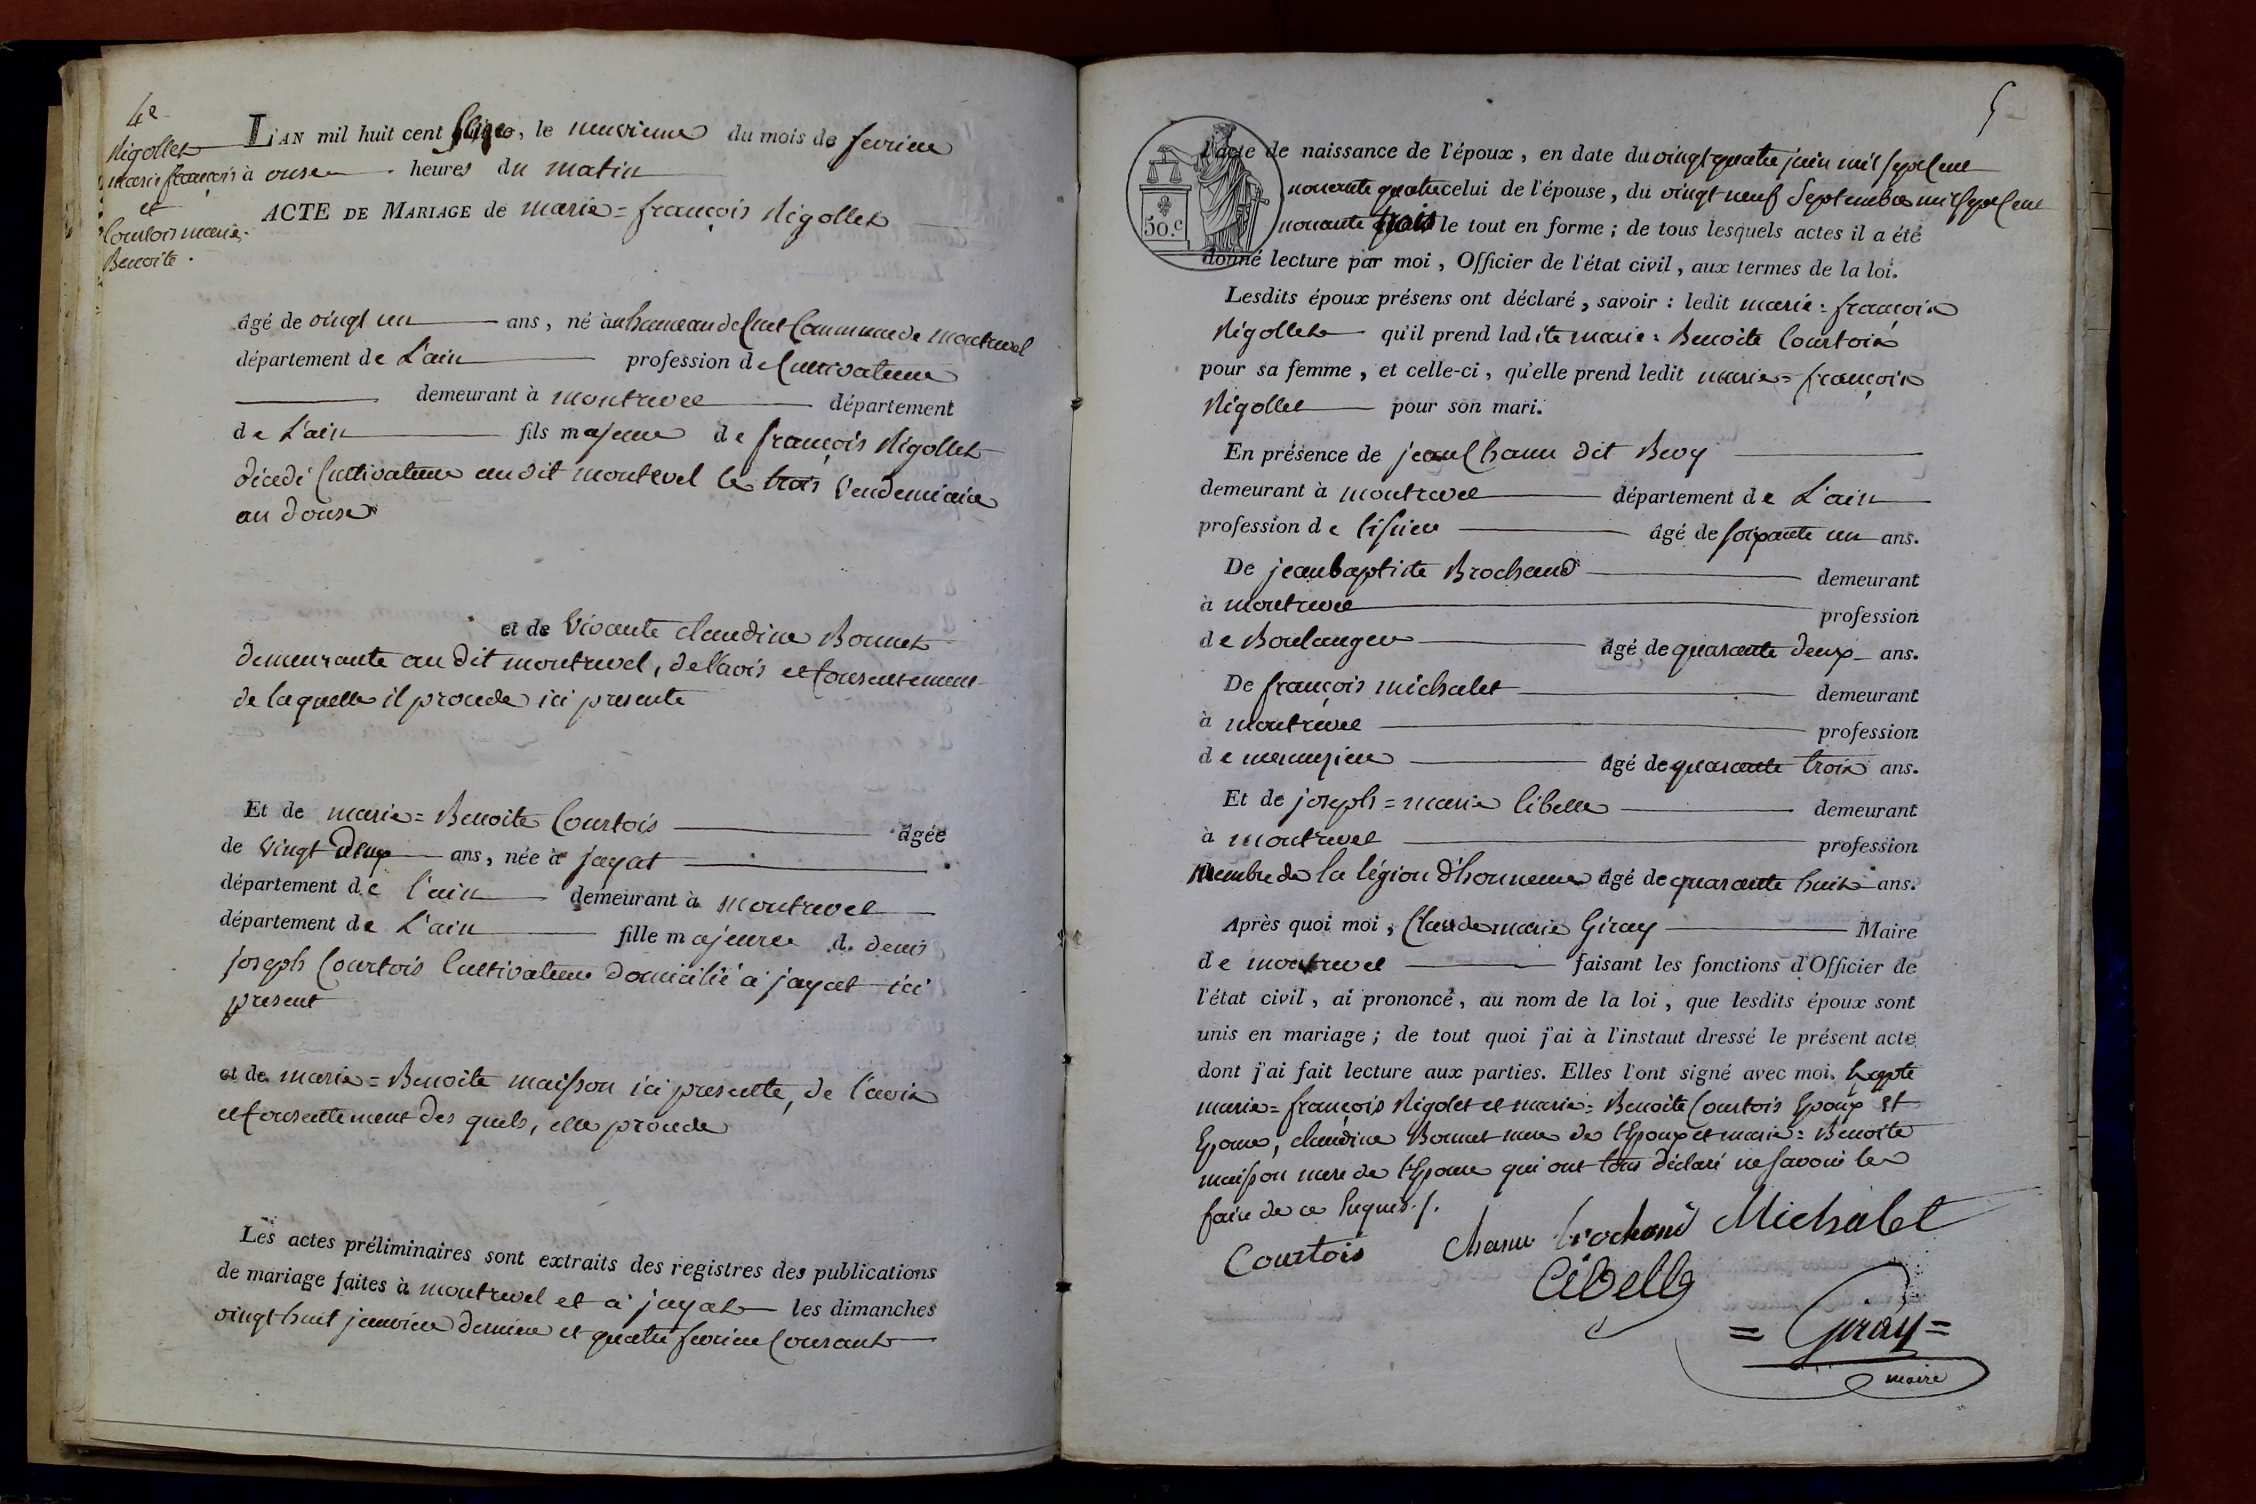 4e
Nigollet
marie françois
et
Courtois marie
Benoite.
L'AN mil huit cent seize, le neuvieme du mois de fevrier
à onse heures du matin
ACTE DE MARIAGE de marie = françois Nigollet
âgé de vingt un ans, né au hameau de Cuet Commune de montrevel
département de L'ain profession de Cultivateur
demeurant à montrevel département
de L'ain fils majeur de françois Nigollet
décédé Cultivateur au dit montrevel le trois Vendemiaire
an douse
et de Vivante claudine Bonnet
demeurante au dit montrevel, de l'avis et Consentement
de laquelle il procede ici presente
Et de marie = Benoite Courtois âgée
de Vingt deux ans, née à jayat
département de l'ain demeurant à montrevel
département de L'ain fille majeure de denis
joseph Courtois Cultivateur domicilié a jayat ici
present
et de marie = Benoite maisson ici presente, de l'avis
et Consentement des quels, elle procede
Les actes préliminaires sont extraits des registres des publications
de mariage faites à montrevel et a jayat les dimanches
vingt huit janvier dernier et quatre fevrier Courant
5
50.c
l'acte de naissance de l'époux, en date du vingt quatre juin mil sept Cent
nonante quatre celui de l'épouse, du vingt neuf Septembre mil sept Cent
nonante trois le tout en forme ; de tous lesquels actes il a été
donné lecture par moi, Officier de l'état civil, aux termes de la loi.
Lesdits époux présens ont déclaré, savoir : ledit marie = françois
Nigollet qu'il prend ladite marie = Benoite Courtois
pour sa femme, et celle-ci, qu'elle prend ledit marie = françois
Nigollet pour son mari.
En présence de jean Chanu dit Bevy
demeurant à montrevel département de L'ain
profession de tissier âgé de soixante un ans.
De jean baptiste Brochand demeurant
à montrevel profession
de Boulanger âgé de quarante deux ans.
De françois michalet demeurant
à montrevel profession
de menuzier âgé de quarante trois ans.
Et de joseph = marie Cibelle demeurant
à montrevel profession
membre de la légion d'honneur âgé de quarante huit ans.
Après quoi moi, Claude marie Giray Maire
de montrevel faisant les fonctions d'Officier de
l'état civil, ai prononcé, au nom de la loi, que lesdits époux sont
unis en mariage ; de tout quoi j'ai à l'instaut dressé le présent acte
dont j'ai fait lecture aux parties. Elles l'ont signé avec moi. Excepté
marie = françois Nigolet et marie = Benoite Courtois Epoux et
Epouse, claudine Bonnet mere de l'Epoux et marie = Benoite
maisson mere de l'Epouse qui ont tous déclaré ne savoir le
faire de ce Enquis./.
Courtois Chanu brochand Michalet
Cibelle
= Giray =
maire